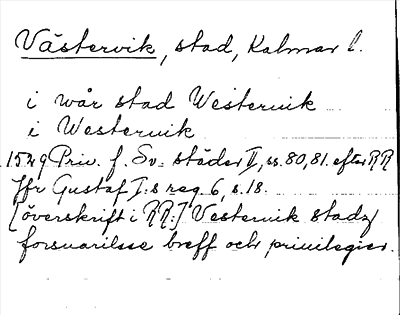 Västervik, stad, Kalmar l.
i wår stad Westervik
i Westervik
1549 Priv. f. Sv. städer II, ss. 80, 81. efter RR
Jfr Gustaf I:s reg. 6, s. 18.
[överskrift i RR:] Vesterwik stadz
forsvarilsse breff och privilegier.